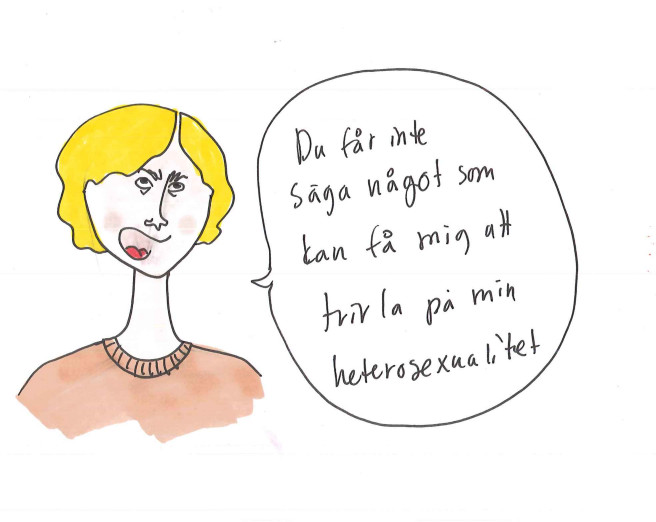 Du får inte
säga något som
kan få mig att
tvivla på min
heterosexualitet